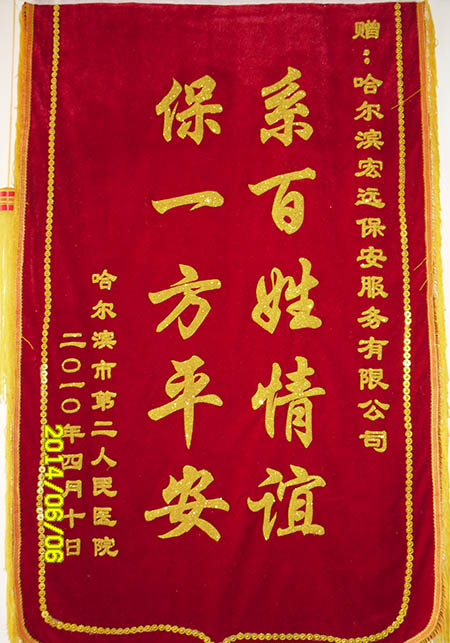 赠：哈尔滨宏远保安服务有限公司
系百姓情谊
保一方平安
哈尔滨市第二人民医院
二〇一〇年四月十日
2014/06/06